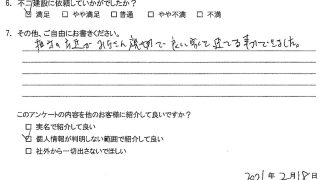 6. 不二建設に依頼していかがでしたか？
☑満足 □やや満足 □普通 □やや不満 □不満
7. その他、ご自由にお書きください。
担当の方達が みなさん 親切で 良い家を建てる事ができました。
このアンケートの内容を他のお客様に紹介して良いですか？
□ 実名で紹介して良い
☑ 個人情報が判明しない範囲で紹介して良い
□ 社外から一切出さないでほしい
2021年 2月18日